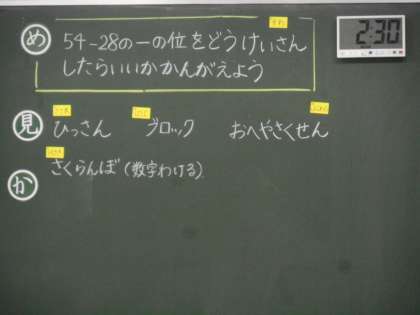 め
54-28の一の位をどうけいさん
したらいいかかんがえよう
2:30
見
ひっさん ブロック おへやさくせん
さくらんぼ(数字わける)
か